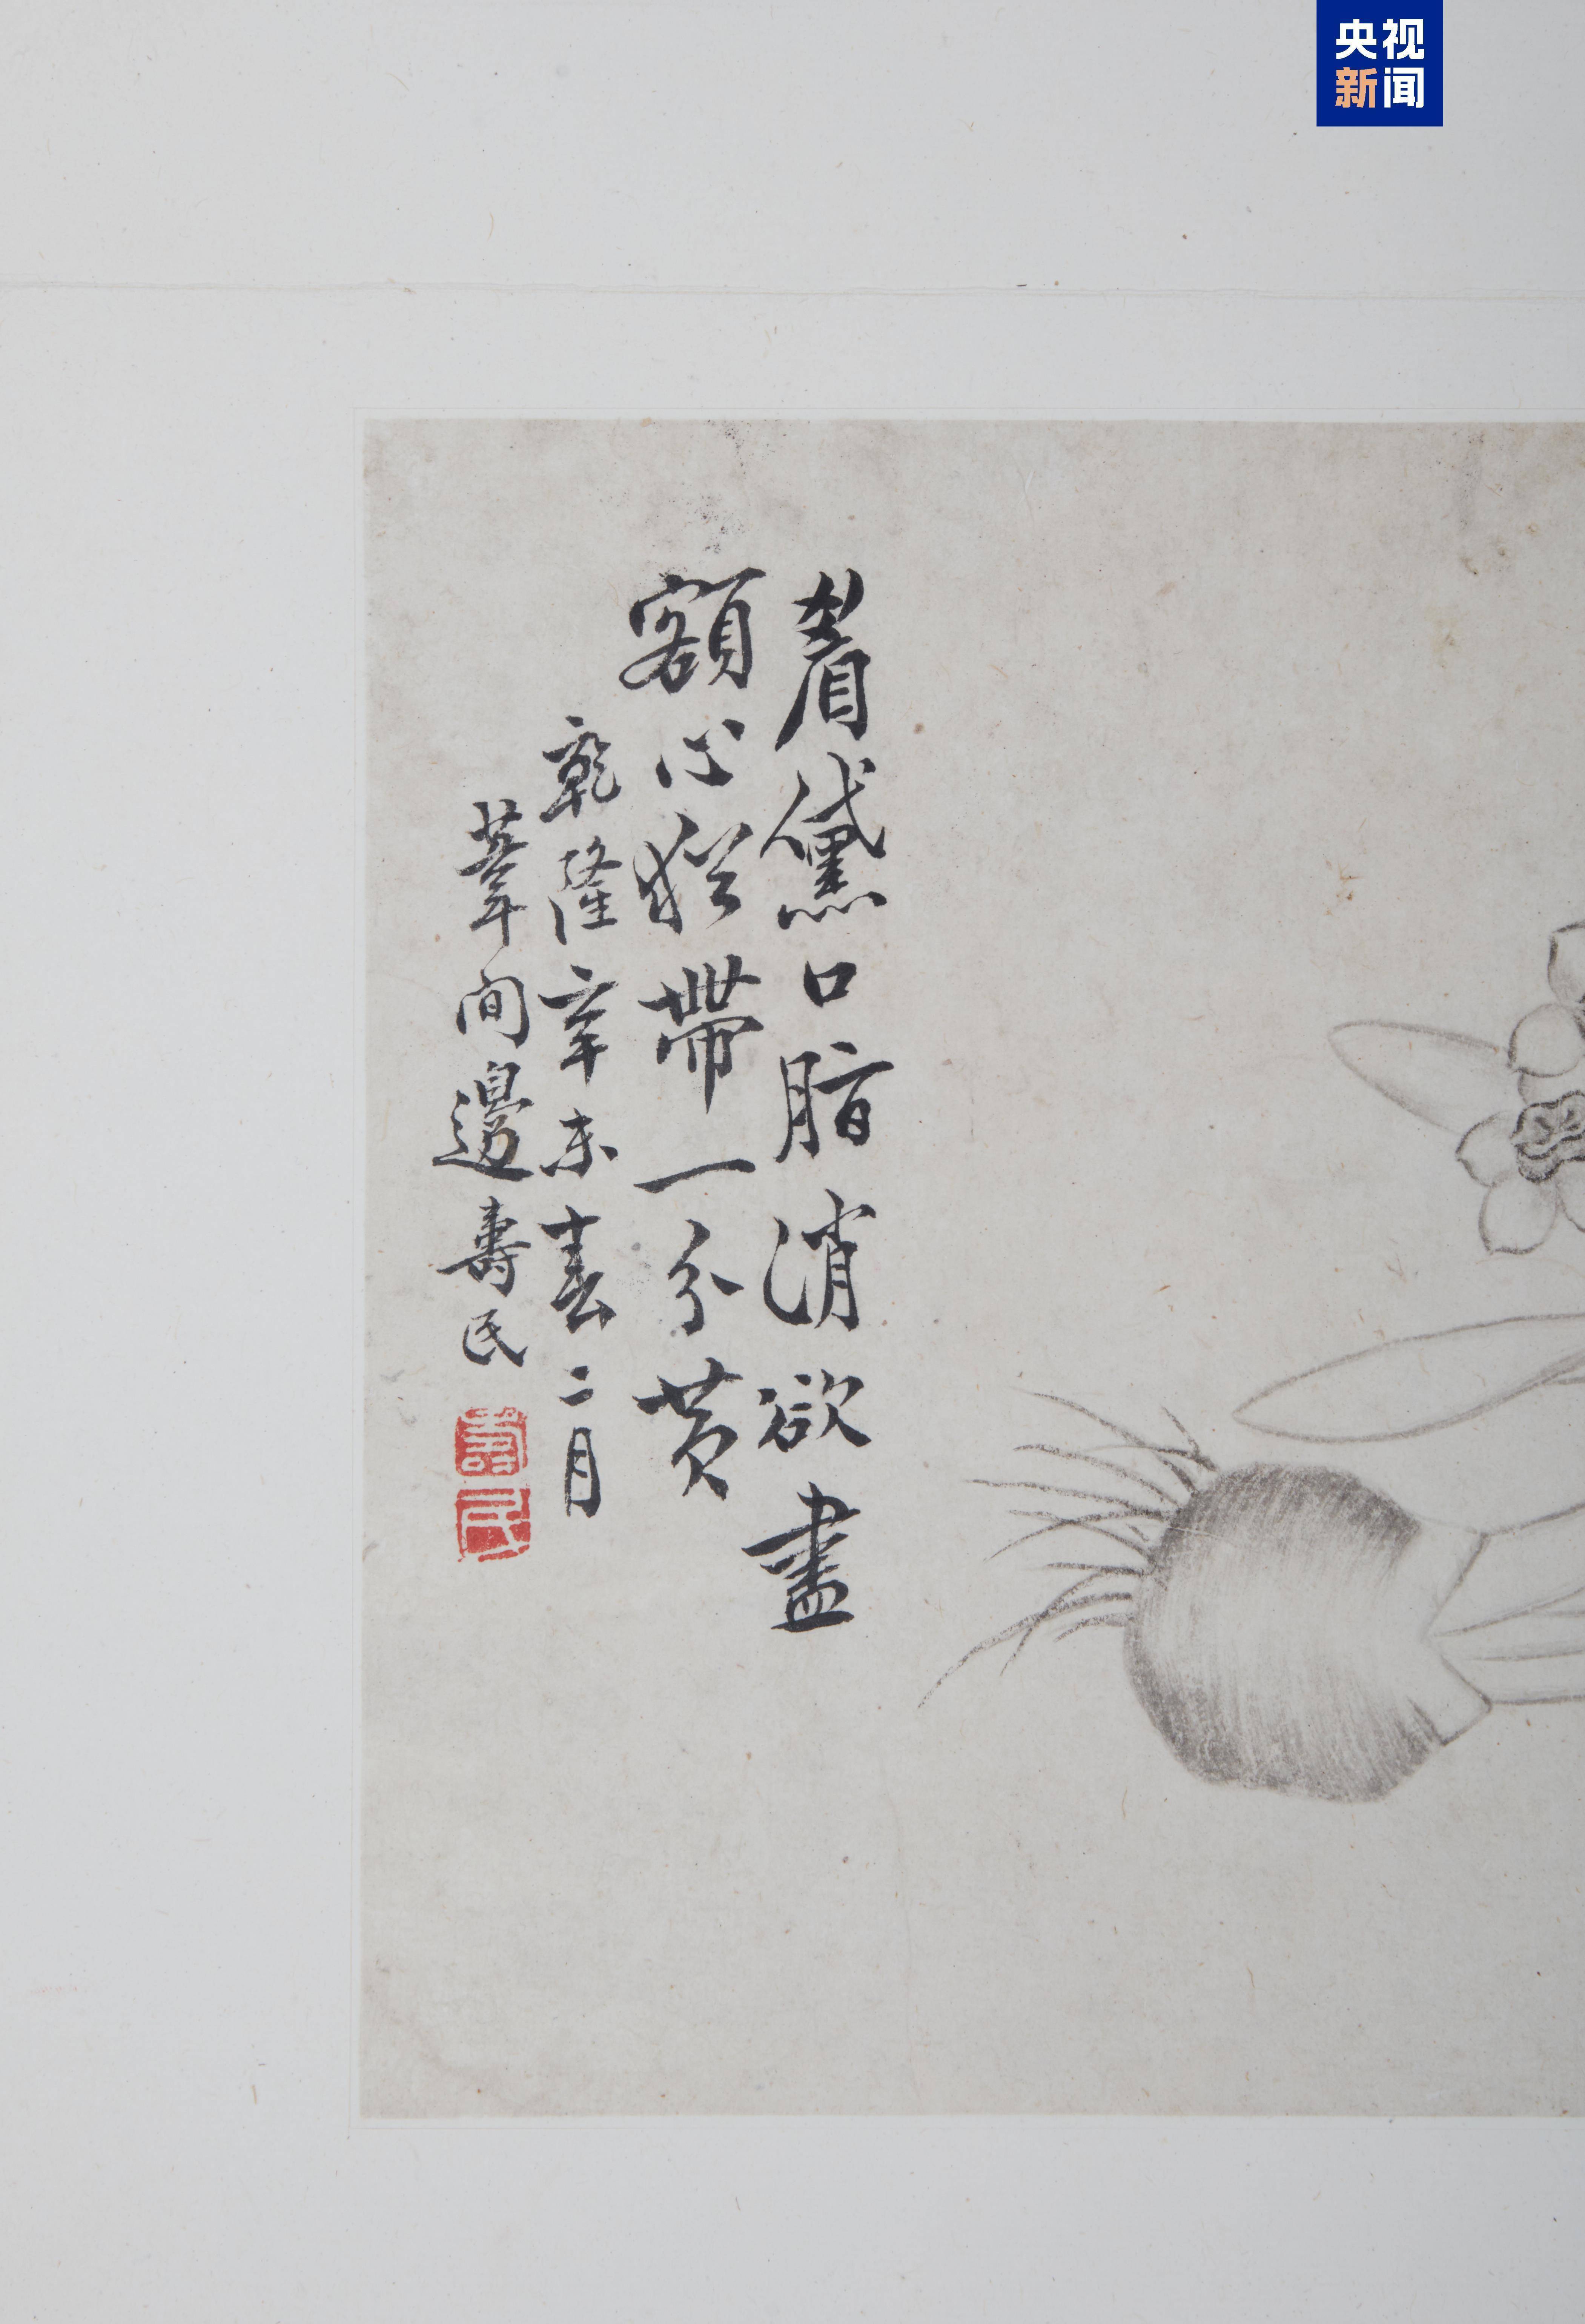 央视
新闻
眉黛口脂消欲盡
額心猶帶一分黃
乾隆辛未春二月
葦間邊壽民
壽
民